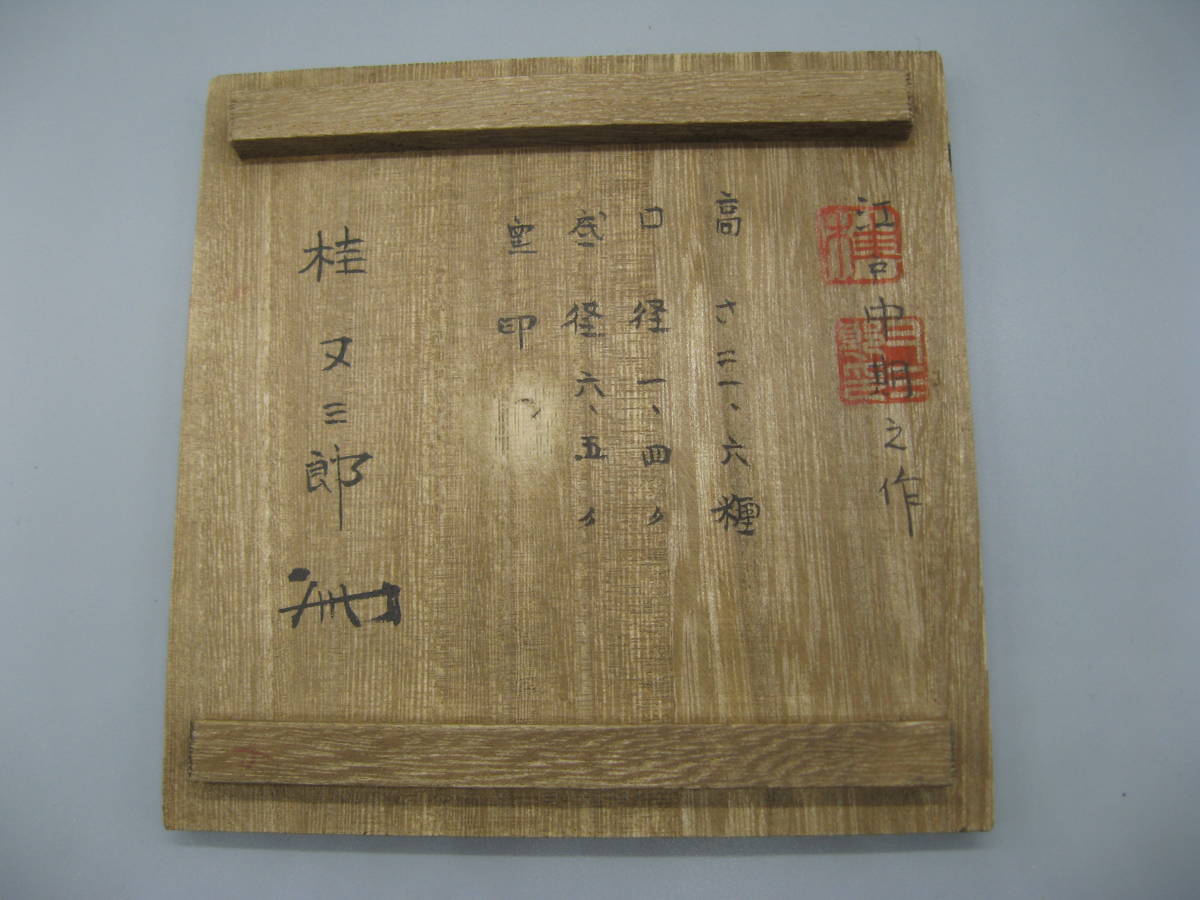 江戸中期之作
高さ二一、六糎
口径一、四〃
底径六、五〃
印
桂又三郎